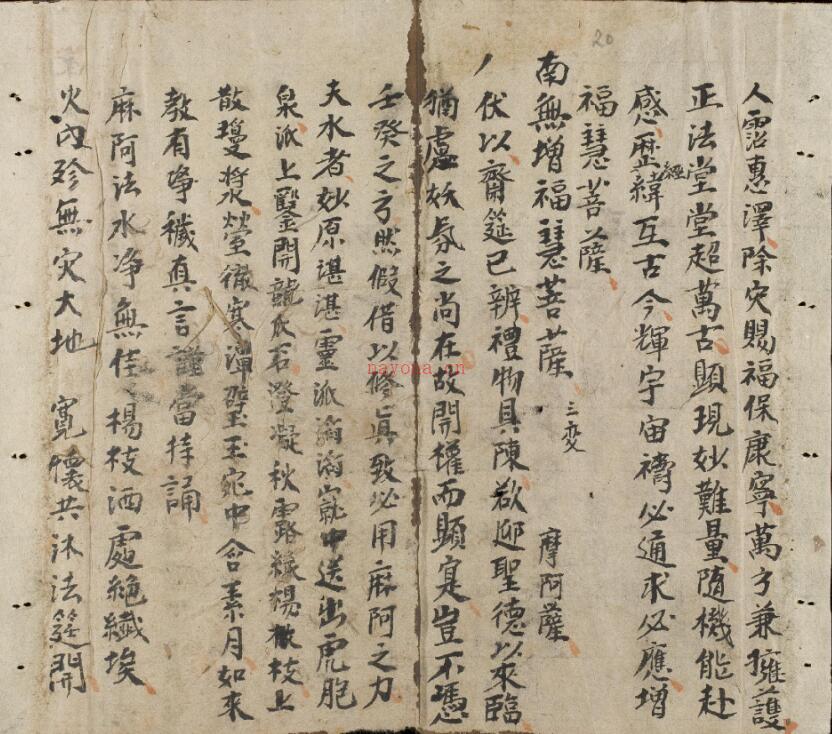 20
人霑惠澤除灾賜福保康寧萬方兼擁護
正法堂堂超萬古顕現妙難量随機能赴
感歴經緯互古今輝宇宙禱必通求必應增
福慧菩薩
南無增福慧菩薩 三変 摩阿薩
伏以齋筵已辦禮物具陳欲迎聖德以來臨
猶慮妖氛之尚在故開權而顕寔豈不憑
壬癸之方然假借以修真致必用麻阿之力
夫水者妙原湛湛靈派滔滔竅中送出虎胞
泉派上鑿開龍氏石澄凝秋露緑楊枝上
散瓊漿瑩徹寒潭碧玉宛中含素月如來
教有净穢真言謹當持誦
麻阿法水净無佳楊枝洒處絶纖埃
火內殄無灾大地 寛懐共沐法筵開
nayona.cn